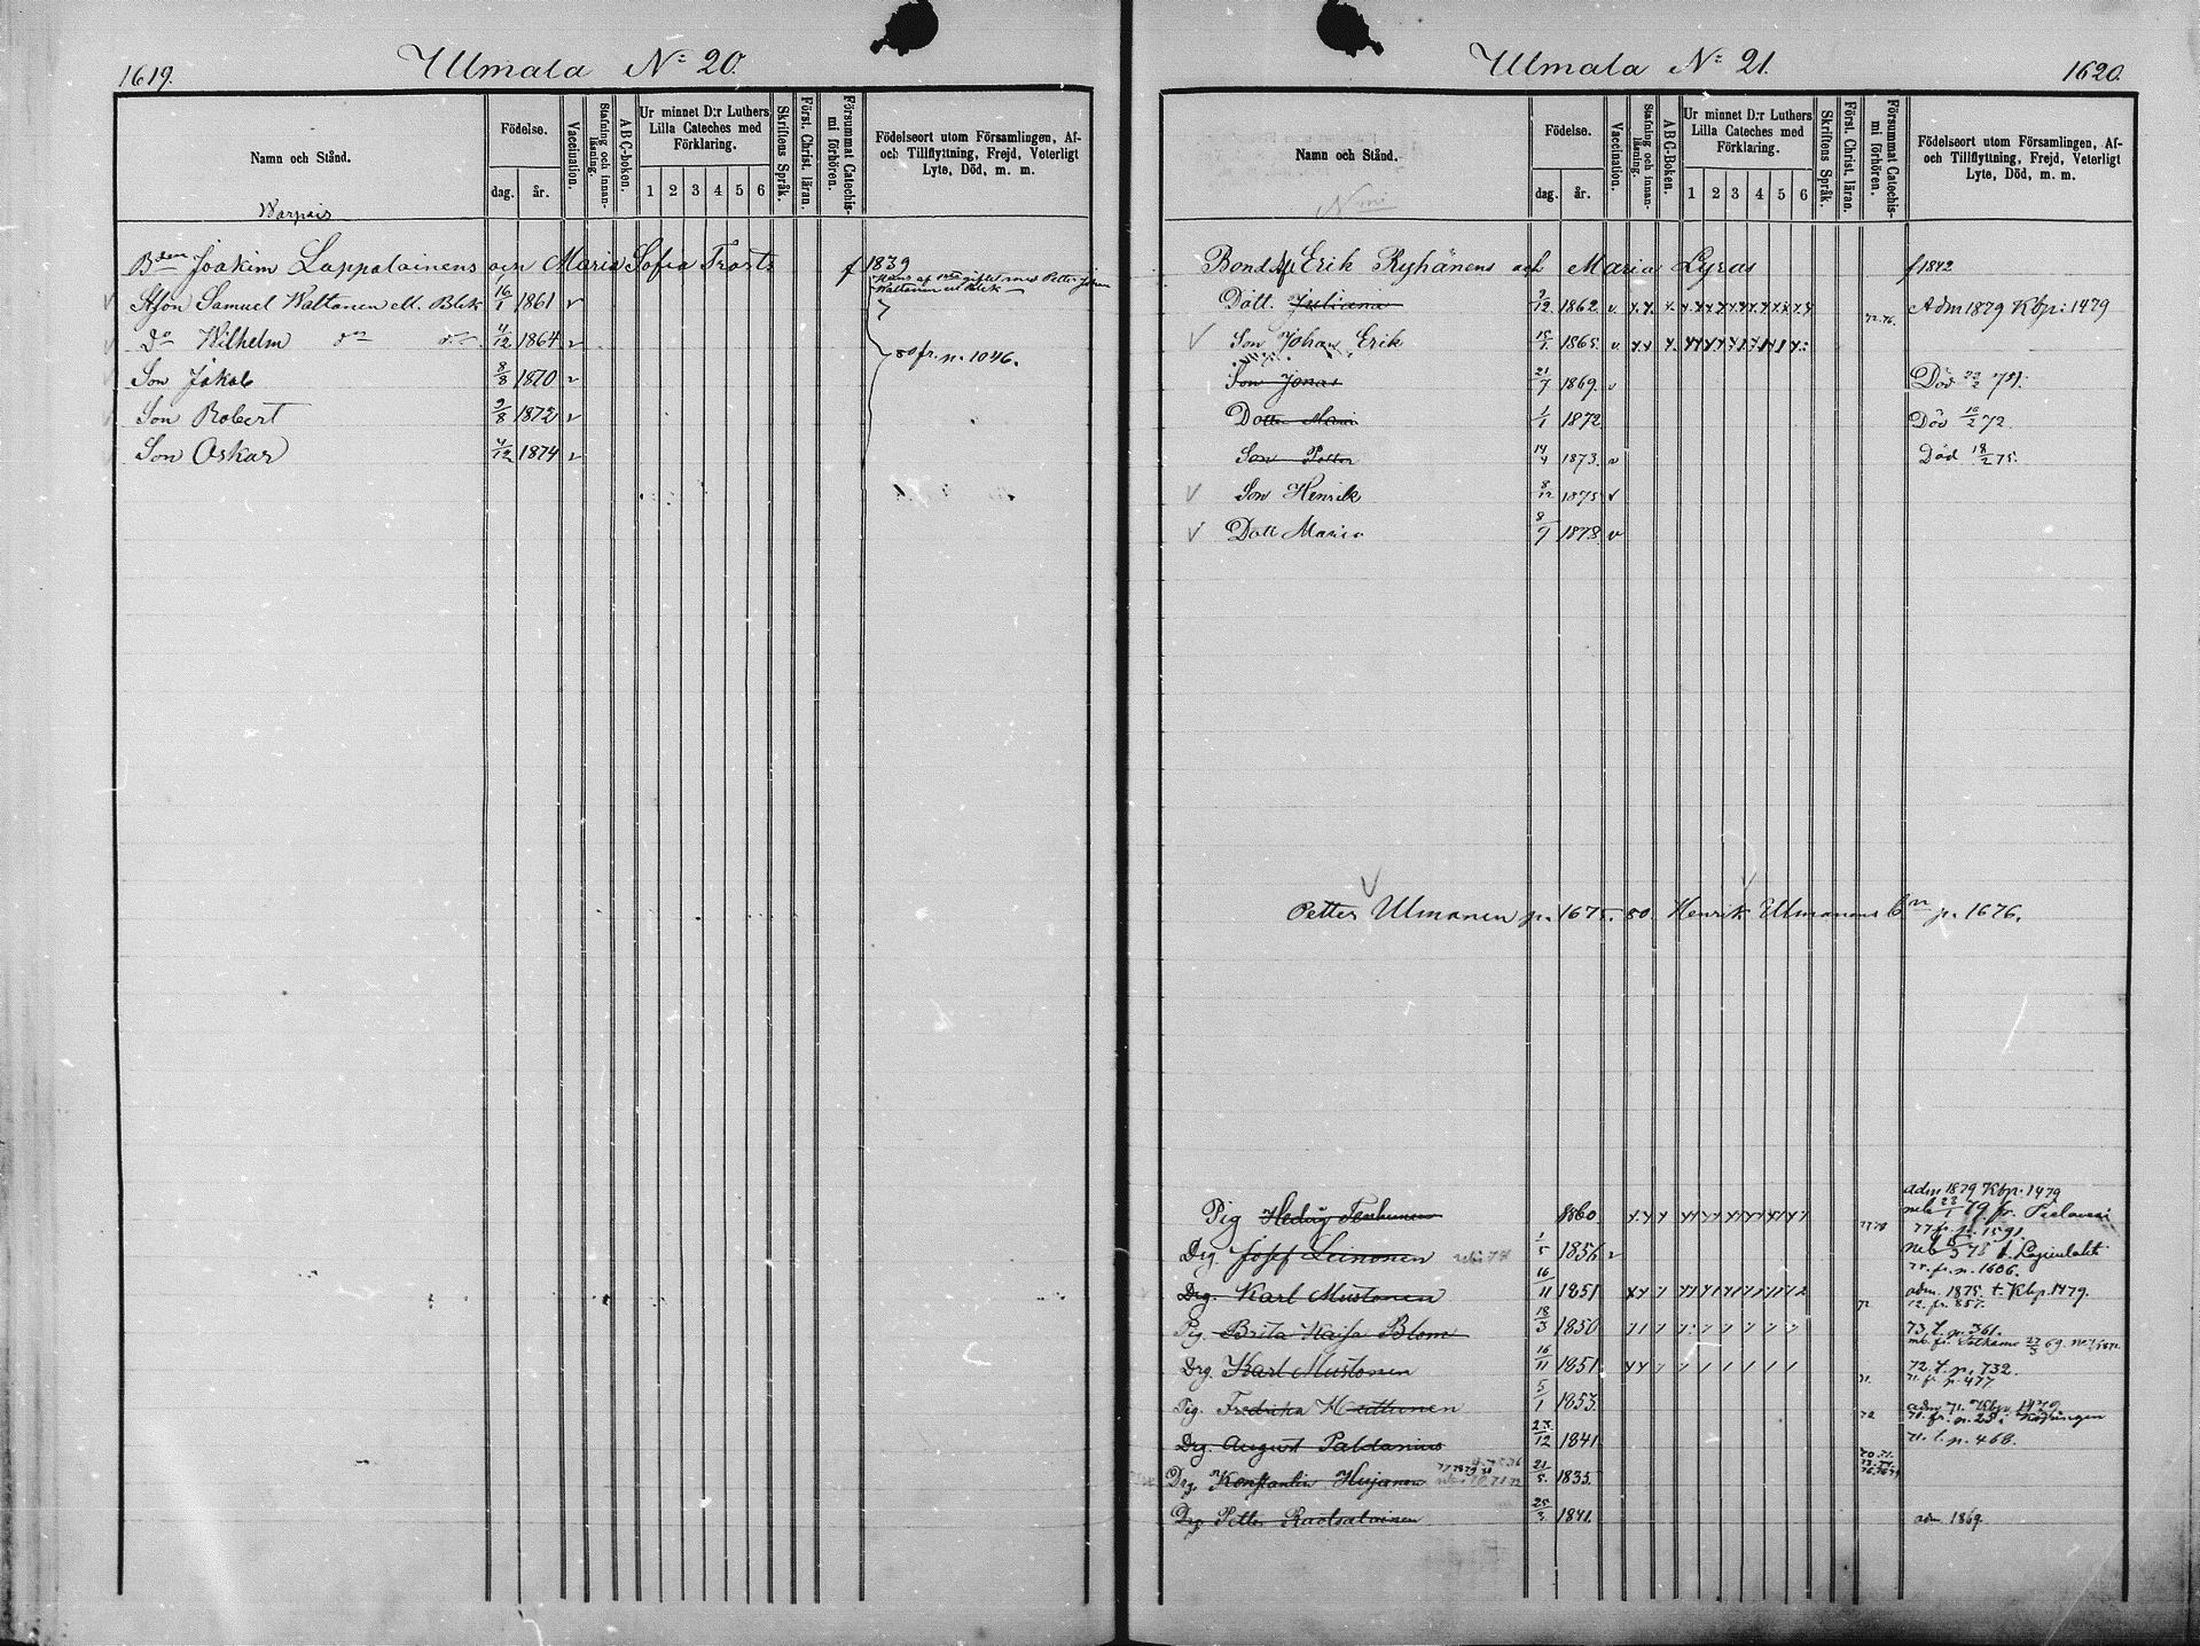 1619.
Ulmala N:o 20.
Namn och Stånd.
Födelse.
dag.
år.
Vaccination.
Stafning och innan-läsning.
ABC-boken.
Ur minnet D:r Luthers Lilla Cateches med Förklaring.
1 2 3 4 5 6
Skriftens Språk.
Först. Christ. läran.
Försummat Catechis-mi förhören.
Födelseort utom Församlingen, Af- och Tillflyttning, Frejd, Veterligt Lyte, Död, m. m.
Warpais
Bden Joakim Lappalainens och Maria Sofia Trasts f 1839
gift med Petter Johan
Waltonen
Stfson Samuel Waltonen ell. Blek 16/1 1861 v
Do Wilhelm do do 4/12 1864 v
80 fr. p. 1046.
Son Jakob 8/8 1870 v
Son Robert 9/8 1872 v
Son Oskar 4/12 1874 v
Ulmala N:o 21.
1620.
Namn och Stånd.
Födelse.
dag.
år.
Vaccination.
Stafning och innan-läsning.
ABC-Boken.
Ur minnet D:r Luthers Lilla Cateches med Förklaring.
1 2 3 4 5 6
Skriftens Språk.
Först. Christ. läran.
Försummat Catechis-mi förhören.
Födelseort utom Församlingen, Af- och Tillflyttning, Frejd, Veterligt Lyte, Död, m. m.
Bond Erik Ryhänens och Maria Lyras f 1842
Dott. Juliana 9/12 1862. v. Adm 1879 Kbp: 1479
Son Johan Erik 1865. v.
Son Jonas 21/7 1869. v Död
Dotter Maria 1/1 1872 Död 10/2 72.
Son Petter 14/4 1873. v Död 18/2 75.
Son Henrik 8/12 1875 v
Dott Maria 8/9 1878. v
Petter Ulmanen p. 1675. 80. Henrik Ulmanens p. 1676.
adm 1879 Kbp. 1479
Pig Hedvig 1860. 79 fr. Pielavesi
77 fr. p. 1591.
Drg. Josef Leinonen 1/5 1856 v 78 t. Lapinlahti
75. fr. p. 1606.
Drg. Karl Mustonen 16/11 1851 adm. 1875. t. Kbp. 1479.
72. fr. 857.
Pig. Brita Kaisa Blom 18/3 1850 73 t. p. 361.
fr. Sotkamo 69.
Drg. Karl Mustonen 16/11 1851. 72. t. p. 732.
71. fr. p. 477
Pig. Fredrika Huttunen 5/1 1853. adm 71. Kbp 1479
Drg. August Paldanius 12 1841. 71. t. p. 468.
Drg. Konstantin Hujanen 21/5 1835.
Drg. Petter Rautsalainen 25/3 1841. adm 1869.